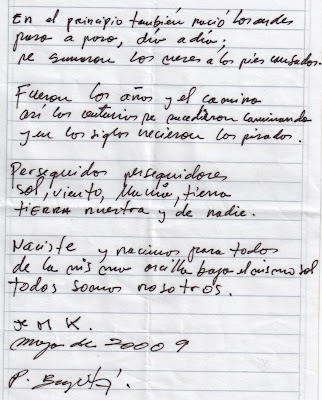 En el principio también nació los andes
paso a paso, día a día;
se sumaron los meses a los pies cansados.
Fueron los años y el camino
así los centurios se sucedieron caminando
y en los siglos nacieron los pisados.
Perseguidos perseguidores
sol, viento, lluvia, tierra
tierra nuestra y de nadie.
Naciste y nacimos para todos
de la misma arcilla bajo el mismo sol
todos somos nosotros.
x M K.
mayo de 20009
P.